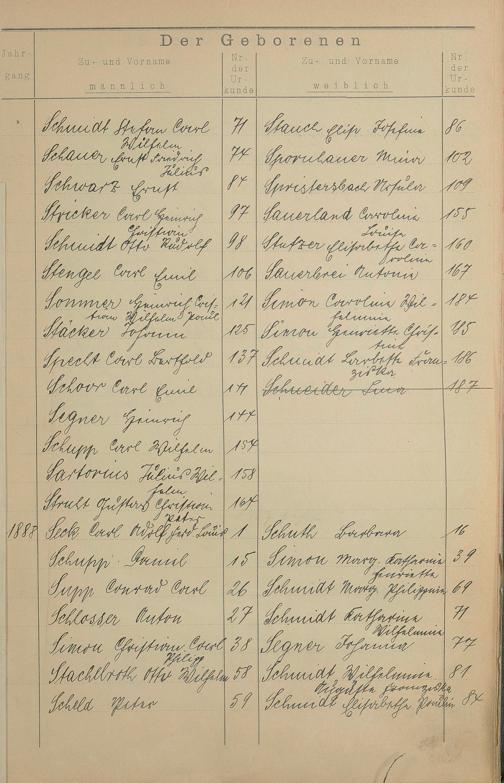 Der Geborenen
Jahr-
gang
Zu- und Vorname
männlich
Nr.
der
Ur-
kunde
Zu- und Vorname
weiblich
Nr.
der
Ur-
kunde
Schmidt Stefan Carl 71 Stauch Elise Josefine 86
Wilhelm
Schauer Ernst Friedrich 74 Spornhauer Mina 102
Julius
Schwarz Ernst 84 Spristersbach Ursula 109
Stricker Carl Heinrich 97 Sauerland Carolina 155
Christian Louise
Schmidt Otto Rudolf 98 Stutzer Elisabetha Ca- 160
rolina
Stengel Carl Emil 106 Sauerbrei Antonie 167
Sommer Heinrich 121 Simon Carolina Wil- 184
Wilhelm Paul helmine
Stäcker Johann 125 Simon Henriette Chris-
tine
Specht Carl Berthold 137 Schmidt Babette Fran- 186
ziska
Schoor Carl Emil Schneider Lina 187
Segner Heinrich 144
Schupp Carl Wilhelm 154
Sartorius Julius Wil- 158
helm
Gustav Christian 164
Peter
1888 Seck Carl Adolf Ferd. Louis 1 Schuth Barbara 16
Schupp Daniel 15 Simon Marg. Katharine 39
Henriette
Supp Conrad Carl 26 Schmidt Marg. Philippine 69
Schlosser Anton 27 Schmidt Katharina 71
Wilhelmine
Simon Christian Carl 38 Segner Johanna 77
Philipp
Otto Wilhelm 58 Schmidt Wilhelmine 81
Auguste Franziska
Scheld Peter 59 Schmidt Elisabetha Paulin 84